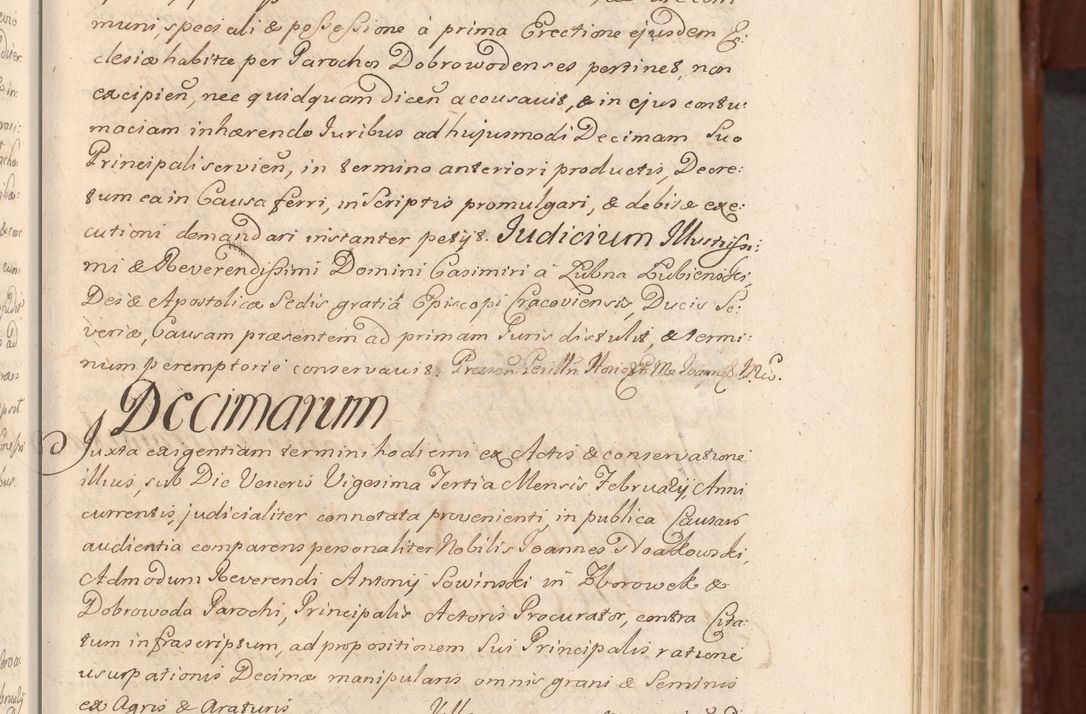 muni speciali & possessione à prima Erectione ejusdem Ec:
clesiæ habitæ per Parochos Dobrowodenses pertinet, non
excipien̄, nec quidquam dicen̄ accusavit, & in ejus contu:
maciam inhærendo Juribus ad hujusmodi Decimam Suo
Principali servien̄, in termino anteriori productis, Decre:
tum ea in Causa ferri, in Scriptis promulgari, & debitæ exe:
cutioni demandari instanter petijt. Judicium Illustrissi:
mi & Reverendissimi Domini Casimiri à Łubna Łubienski,
Dei & Apostolicæ Sedis gratiâ Episcopi Cracoviensis, Ducis Se:
veriæ, Causam præsentem ad primam Juris distulit, & termi:
num peremptorie conservavit.
Decimarum
Juxta exigentiam termini hodierni ex Actis & conservatione
illius, sub Die Veneris Vigesima Tertia Mensis Februarij Anni
currentis, judicialiter connotata provenienti, in publica Causar̄
audientia comparens personaliter Nobilis Joannes Noakowski,
Admodum Reverendi Antonij Sowinski in Zborowek &
Dobrowoda Parochi, Principalis Actoris Procurator, contra Cita:
tum infrascriptum, ad propositionem Sui Principalis ratione
usurpationis Decimæ manipularis omnis grani & Seminis
ex Agris & Araturis